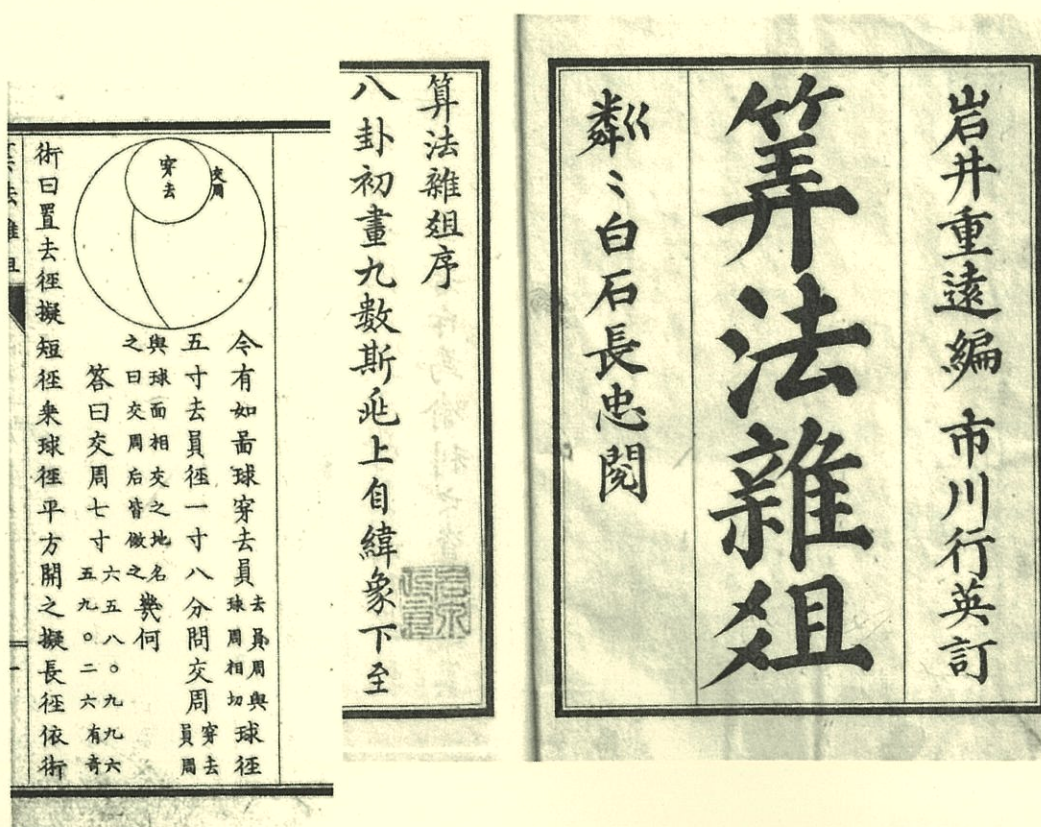 岩井重遠編 市川行英訂
筭法雜爼
粼〻白石長忠閲
算法雜爼序
八卦初畫九數斯兆上自緯象下至
交周
穿去
今有如啚球穿去員去員周與球周相切球徑
五寸去員徑一寸八分問交周穿去員周
與球面相交之地名之曰交周后皆倣之幾何
答曰交周七寸六五八〇九九六五九〇二六有奇
術曰置去徑擬短徑乗球徑平方開之擬長徑依術